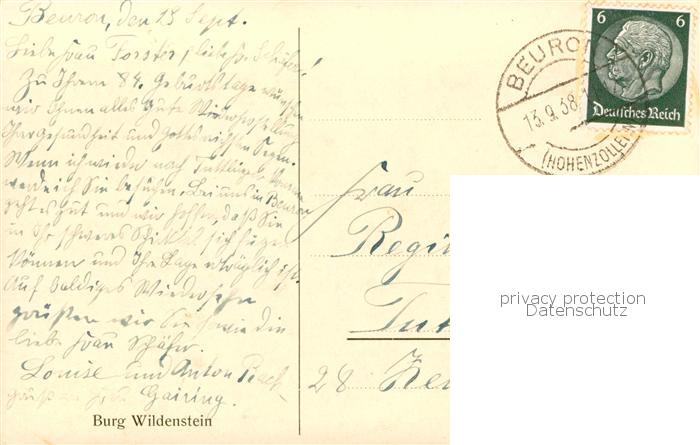 Beuron, den 13 Sept.
Liebe Frau Forster, liebe Fr. Schäfer!
Zu Ihrem 84. Geburtstage wünschen
wir Ihnen alles Gute Wiederherstellung
Ihrer Gesundheit und Gottes reichsten Segen.
Wenn ich wieder nach Tuttlingen komme
werde ich Sie besuchen. Bei uns in Beuron
geht es gut und wir hoffen, daß Sie
in Ihr schweres Schicksal sich fügen
können und Ihre Lage erträglich ist.
Auf baldiges Wiedersehn
grüßen wir Sie sowie die
liebe Frau Schäfer.
Louise und Anton
grüßen Gairing.
Burg Wildenstein
BEURON
13.9.38
(HOHENZOLLERN)
6 6
Deutsches Reich
Frau
Regi
Tut
28
privacy protection
Datenschutz